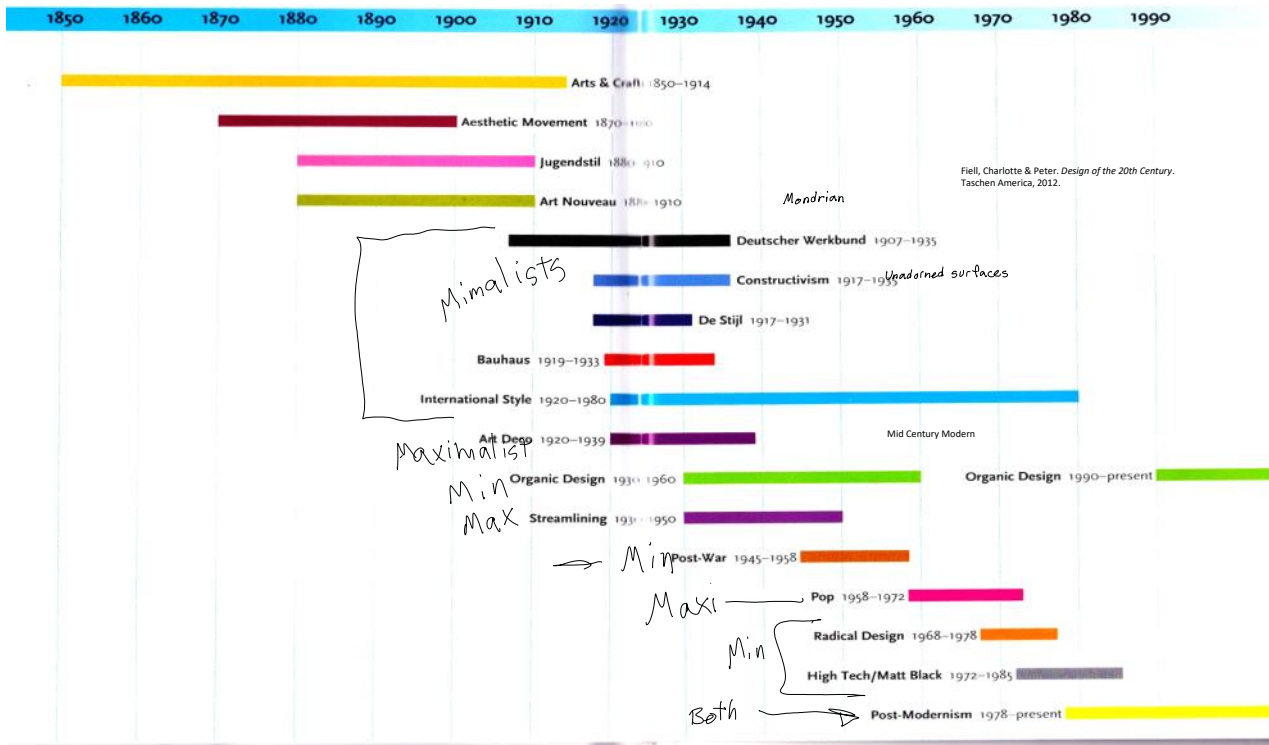 1850 1860 1870 1880 1890 1900 1910 1920 1930 1940 1950 1960 1970 1980 1990
Arts & Craft 1850–1914
Aesthetic Movement 1870–1900
Jugendstil 1880–1910
Fiell, Charlotte & Peter. Design of the 20th Century.
Taschen America, 2012.
Art Nouveau 1880–1910
Mondrian
Deutscher Werkbund 1907–1935
Mimalists
Constructivism 1917–1935
Unadorned surfaces
De Stijl 1917–1931
Bauhaus 1919–1933
International Style 1920–1980
Maximalist
Art Deco 1920–1939
Mid Century Modern
Min
Organic Design 1930–1960
Organic Design 1990–present
Max
Streamlining 1930–1950
Min
Post-War 1945–1958
Maxi
Pop 1958–1972
Min
Radical Design 1968–1978
High Tech/Matt Black 1972–1985
Both
Post-Modernism 1978–present